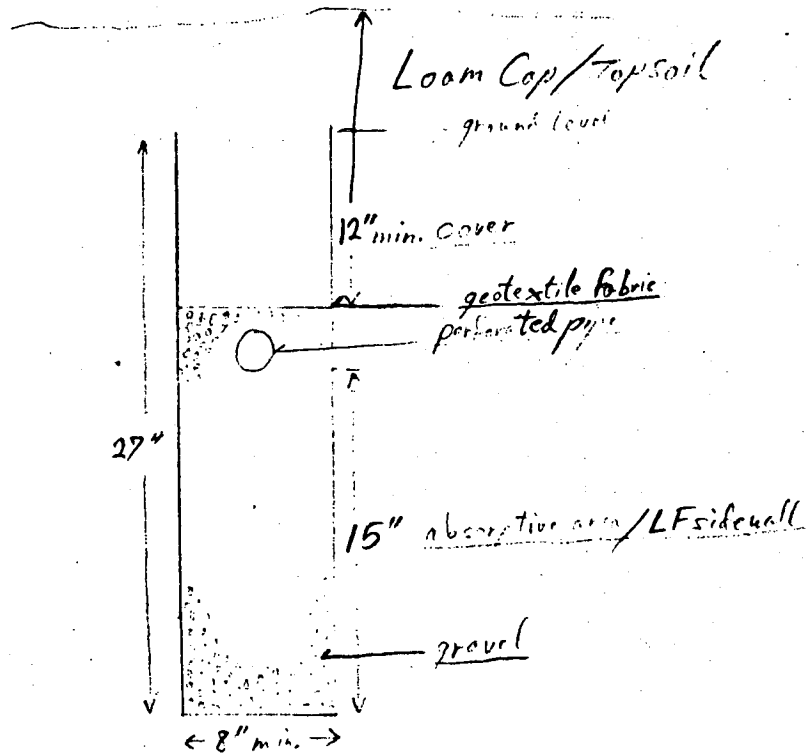 Loam Cap/Topsoil
ground level
12" min. cover
geotextile fabric
perforated pipe
27"
15" absorptive area/LF sidewall
gravel
8" min.